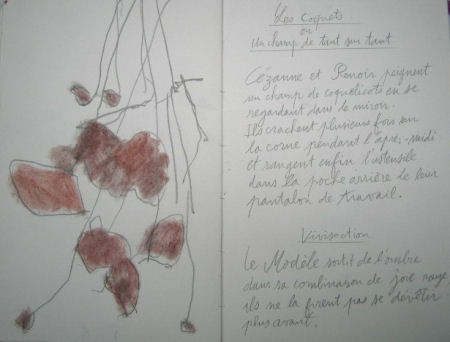 Les Coquets
ou
Un champ de tant sur tant
Cézanne et Renoir peignent
un champ de coquelicots en se
regardant dans le miroir.
Ils crachent plusieurs fois sur
la corne pendant l'après-midi
et rangent enfin l'ustensile
dans la poche arrière de leur
pantalon de travail.
Vivisection
Le Modèle sortit de l'ombre
dans sa combinaison de joie rayé
ils ne la firent pas se dévêtir
plus avant.